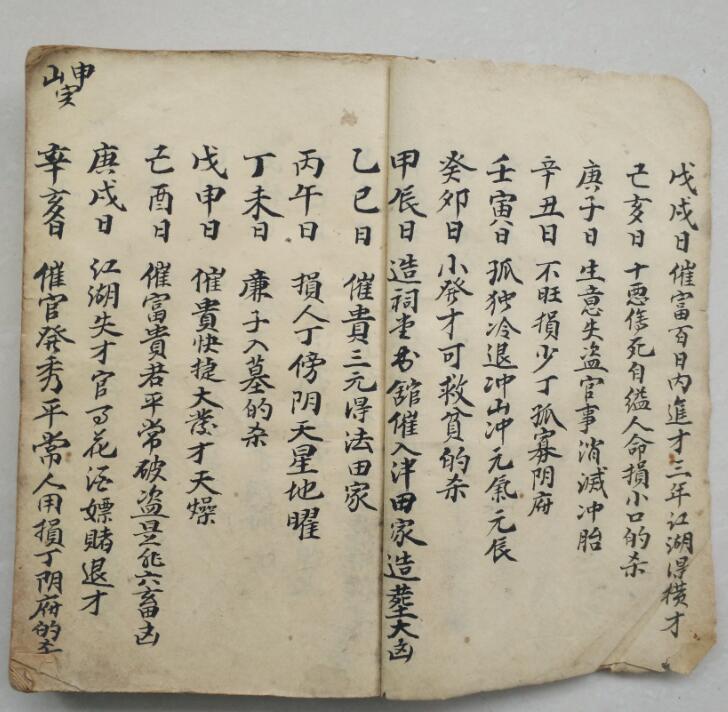 戊戌日催富百日内進才三年江湖得横才
己亥日十惡傷死自缢人命損小口的杀
庚子日生意失盗官事消滅冲胎
辛丑日不旺損少丁孤寡阴府
壬寅日孤独冷退冲山冲元氣元辰
癸卯日小發才可救貧的杀
甲辰日造祠堂书館催入泮田家造塟大凶
乙巳日催貴三元得法田家
丙午日損人丁傍阴天星地曜
丁未日廉子入墓的杀
戊申日催貴快捷大發才天燥
己酉日催富貴君平常破盗是非六畜凶
庚戌日江湖失才官司花酒嫖賭退才
辛亥日催官發秀平常人用損丁阴府的
申山